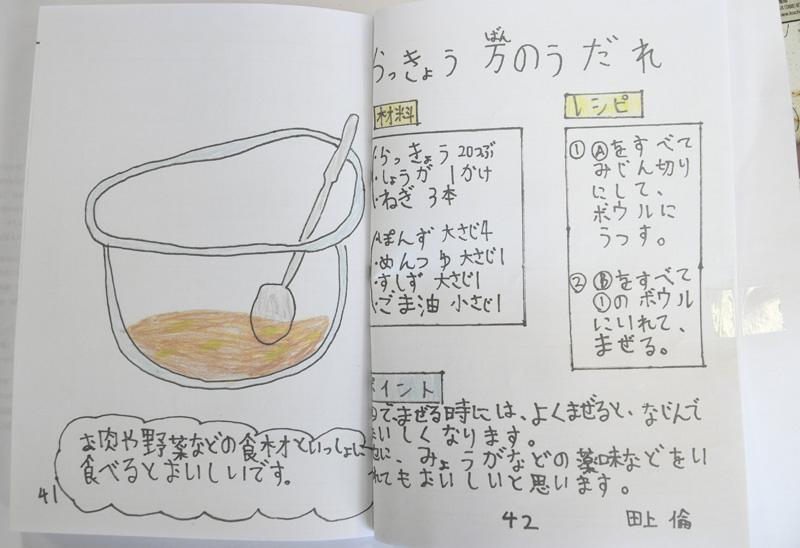 お肉や野菜などの食材といっしょに
食べるとおいしいです。
41
らっきょう万のうだれ
ばん
材料
らっきょう 20つぶ
・しょうが 1かけ
・ねぎ 3本
ぽんず 大さじ4
・めんつゆ 大さじ1
・すしず 大さじ1
・ごま油 小さじ1
レシピ
① Ⓐをすべて
みじん切り
にして、
ボウルに
うつす。
② Ⓑをすべて
①のボウル
にいれて、
まぜる。
ポイント
で、まぜる時には、よくまぜると、なじんで
おいしくなります。
他に、みょうがなどの薬味などをい
れてもおいしいと思います。
42
田上 倫